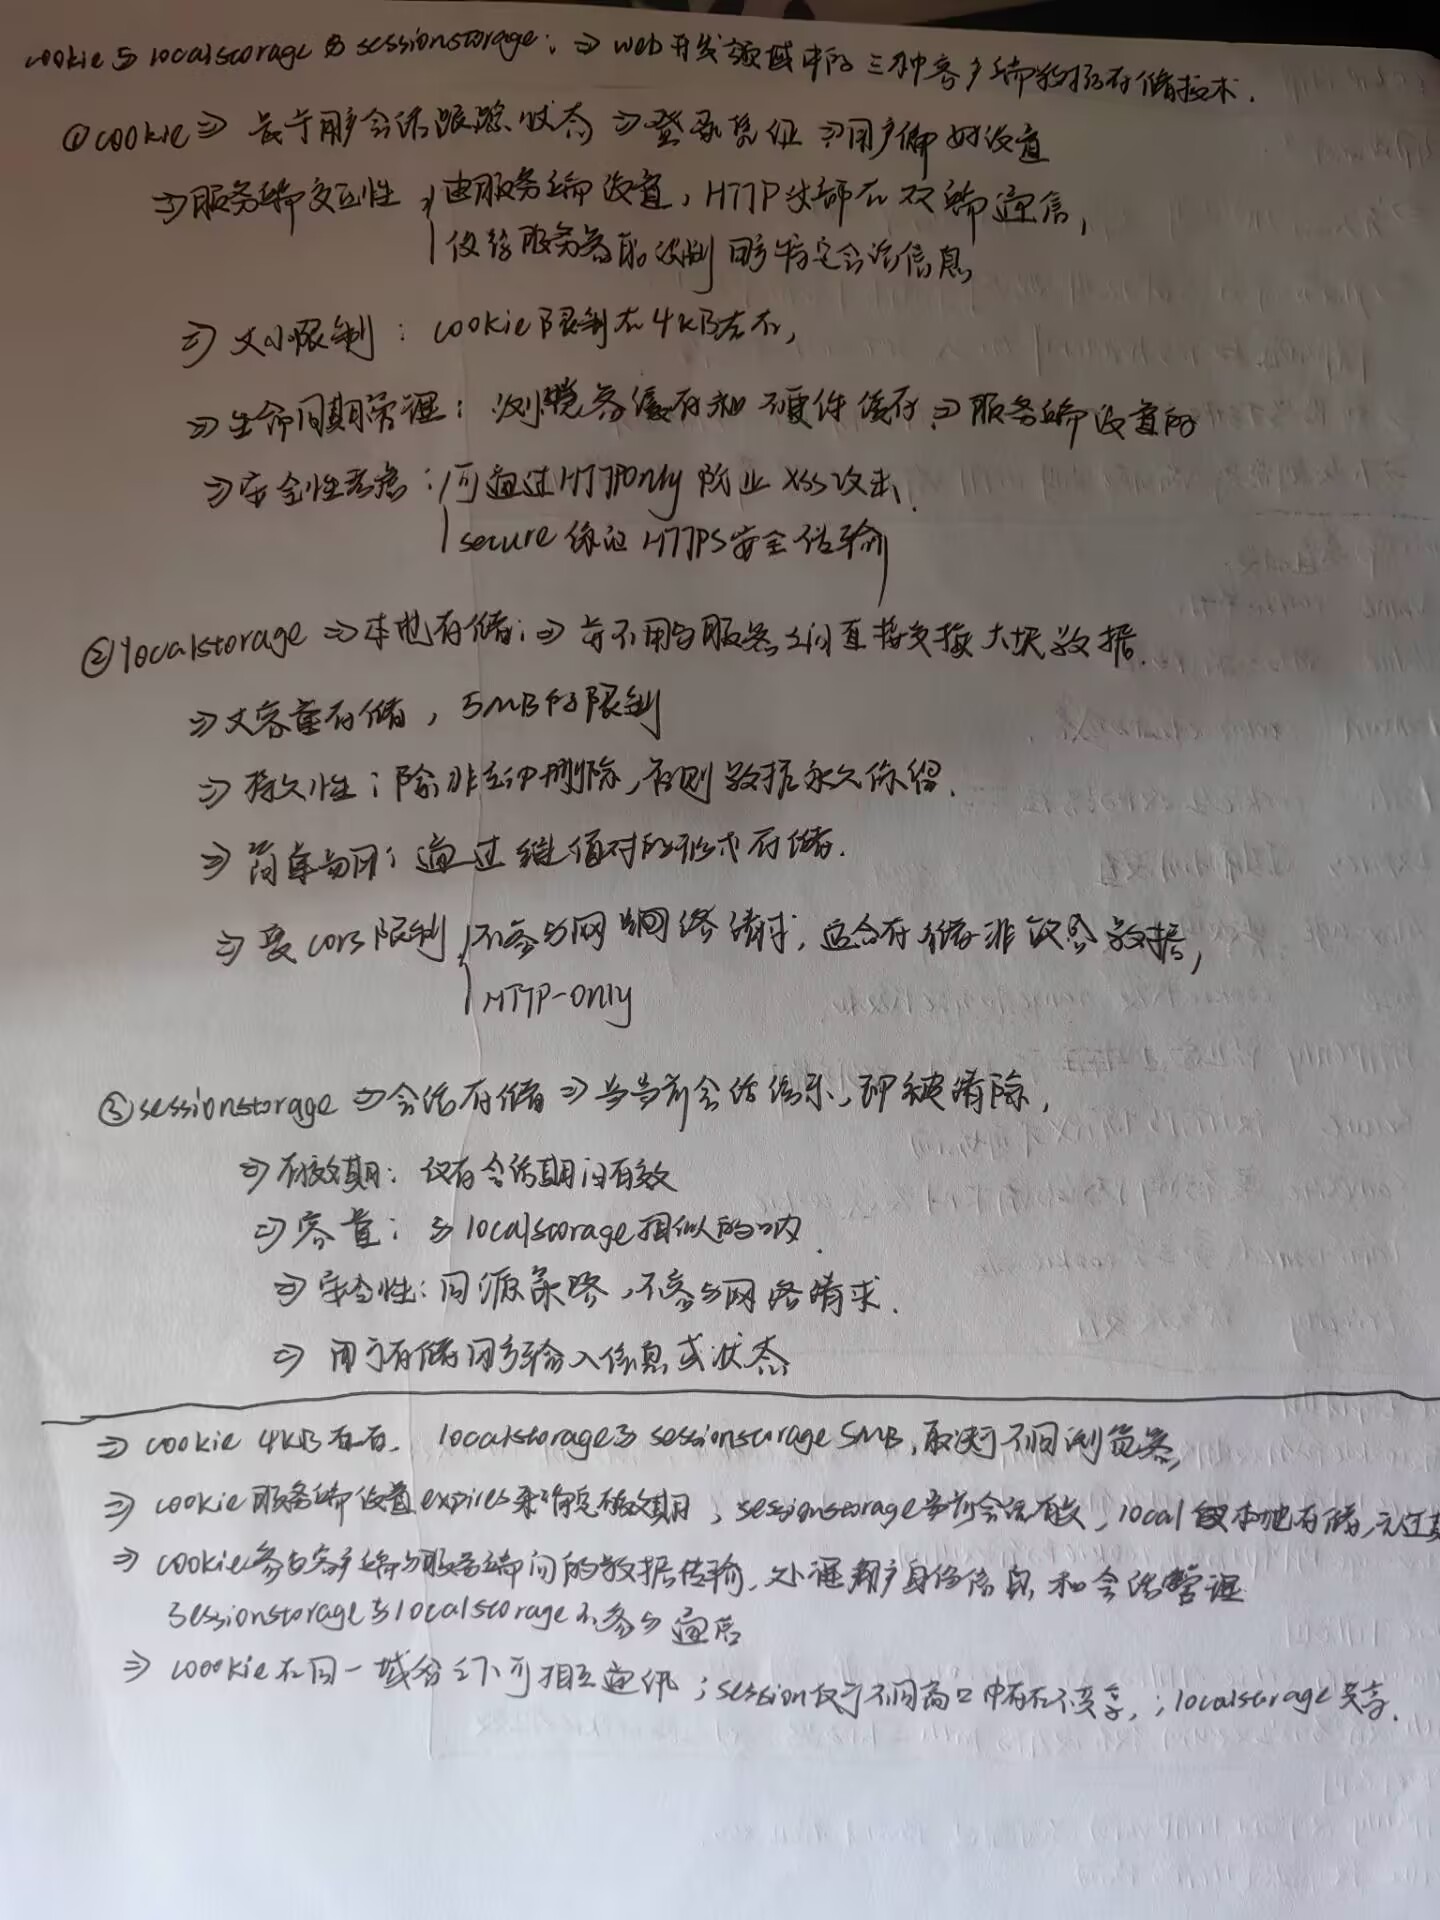 cookie与localstorage与sessionstorage: ⇒ web开发领域中的三种客户端数据存储技术.
①cookie⇒ 长于用户会话跟踪状态 ⇒登录凭证 ⇒用户偏好设置
⇒服务端交互性 由服务端设置, HTTP头部在双端通信,
使得服务器能识别用户特定会话信息
⇒ 大小限制: cookie限制在4KB左右,
⇒生命周期管理: 浏览器缓存和硬件缓存, ⇒服务端设置的
⇒安全性考虑: 可通过HTTPOnly防止XSS攻击.
secure保证HTTPS安全传输
②localstorage ⇒本地存储: ⇒并不用与服务之间直接交换大块数据.
⇒大容量存储, 5MB的限制
⇒持久性: 除非主动删除, 否则数据永久保留.
⇒简单易用: 通过键值对的形式存储.
⇒受CORS限制 不参与网络请求, 适合存储非敏感数据,
HTTP-only
③sessionstorage ⇒会话存储⇒当当前会话结束, 即被清除,
⇒有效期: 仅在会话期间有效
⇒容量: 与localstorage相似的
⇒安全性: 同源策略, 不参与网络请求.
⇒ 用于存储用户输入信息或状态
⇒ cookie 4KB左右. localstorage与sessionstorage 5MB, 取决于不同浏览器,
⇒ cookie服务端设置expires来确定有效期, sessionstorage当前会话有效, local 本地存储, 无过期
⇒ cookie参与客户端与服务端间的数据传输, 处理用户身份信息和会话管理
sessionstorage与localstorage不参与通信
⇒ cookie在同一域名之下可相互通讯; session仅于不同窗口中存在不共享,; localstorage共享.